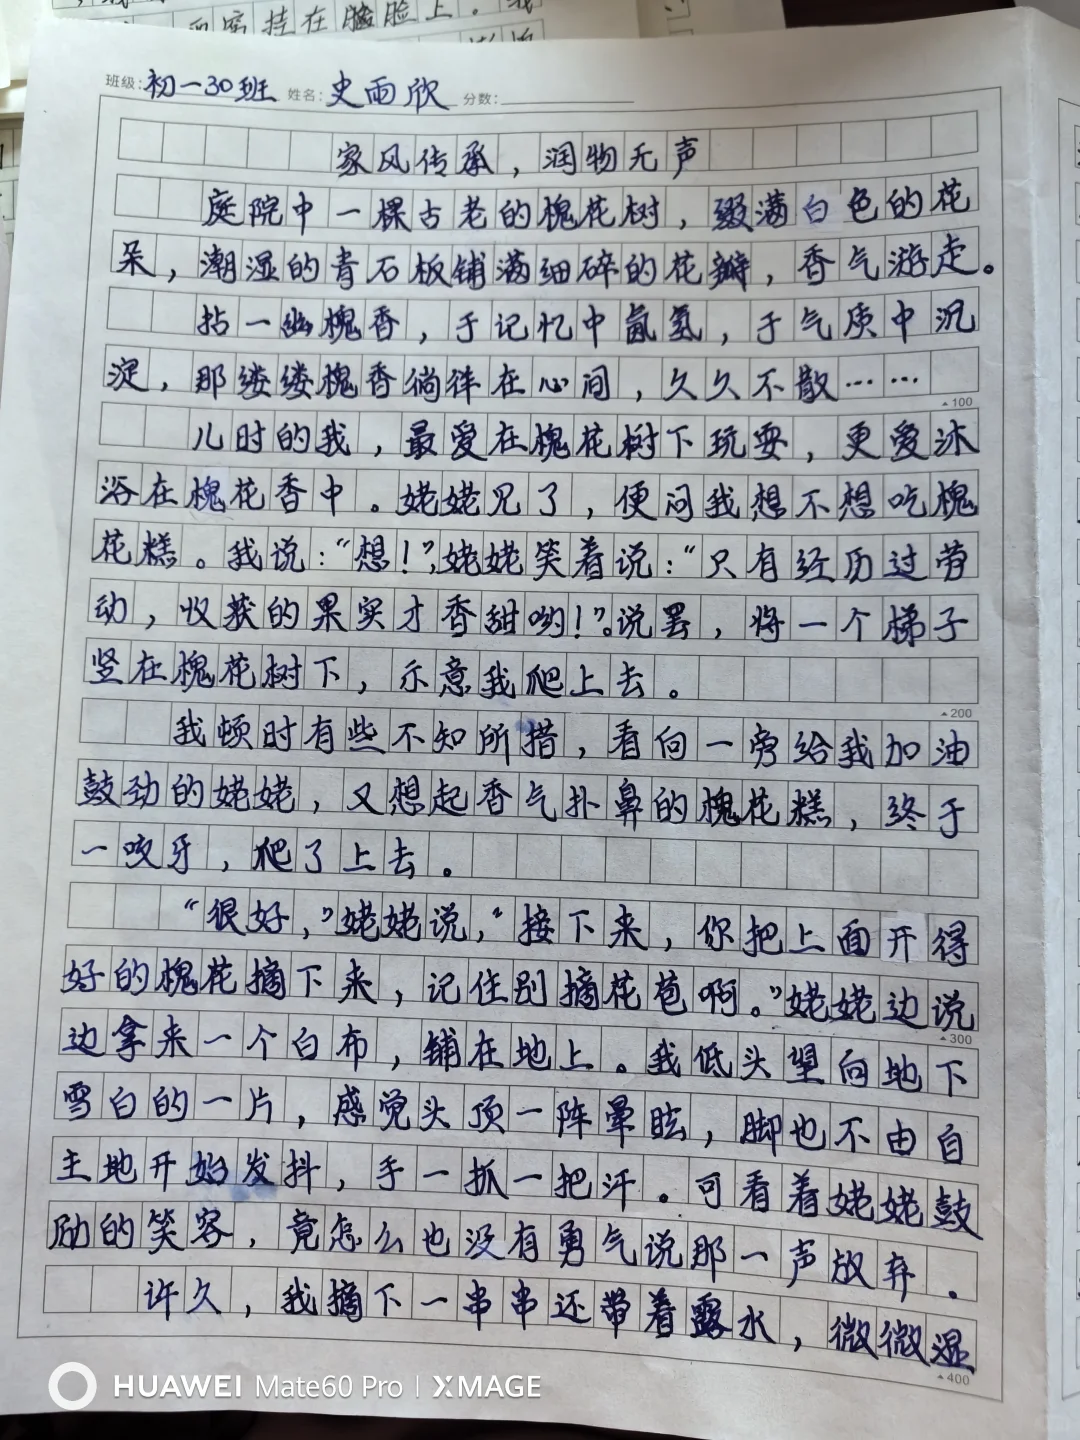 而容挂在脸脸上。我
班级:初一30班 姓名:史雨欣 分数:
家风传承，润物无声
庭院中一棵古老的槐花树，缀满白色的花
朵，潮湿的青石板铺满细碎的花瓣，香气游走。
拈一幽槐香，于记忆中氤氲，于气质中沉
淀，那缕缕槐香徜徉在心间，久久不散……
100
儿时的我，最爱在槐花树下玩耍，更爱沐
浴在槐花香中。姥姥见了，便问我想不想吃槐
花糕。我说：“想！”，姥姥笑着说：“只有经历过劳
动，收获的果实才香甜哟！”。说罢，将一个梯子
竖在槐花树下，示意我爬上去。
200
我顿时有些不知所措，看向一旁给我加油
鼓劲的姥姥，又想起香气扑鼻的槐花糕，终于
一咬牙，爬了上去。
“很好，”姥姥说，“接下来，你把上面开得
好的槐花摘下来，记住别摘花苞啊。”姥姥边说
300
边拿来一个白布，铺在地上。我低头望向地下
雪白的一片，感觉头顶一阵晕眩，脚也不由自
主地开始发抖，手一抓一把汗。可看着姥姥鼓
励的笑容，竟怎么也没有勇气说那一声放弃。
许久，我摘下一串串还带着露水，微微湿
400
HUAWEI Mate60 Pro | XMAGE